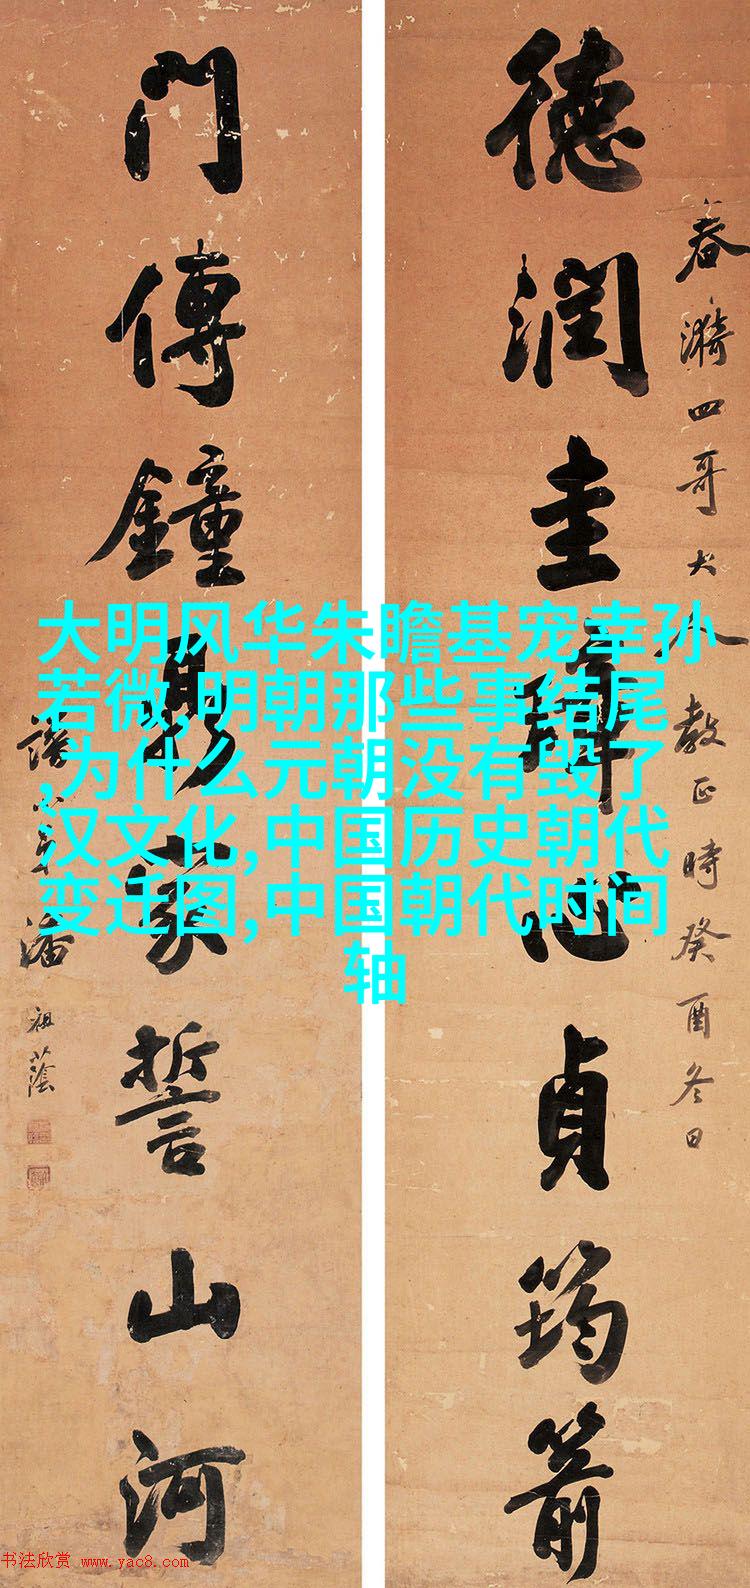 大明风华朱瞻基宠幸孙
若微,明朝那些事结尾
,为什么元朝没有毁了
汉文化,中国历史朝代
变迁图,中国朝代时间
轴
春漪四哥大人教正時癸酉冬日
德潤圭璋心貞筠箭
門傳鐘鼎家誓山河
譜小弟潘祖蔭
书法欣赏 www.yac8.com